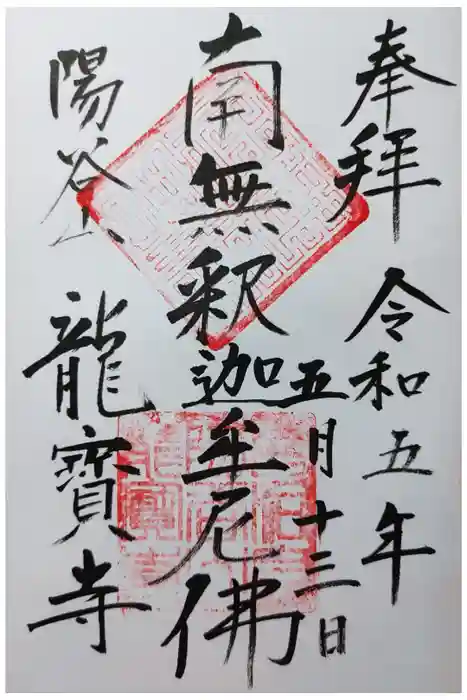 奉拝 令和五年
五月十三日
南無釈迦牟尼佛
陽谷山 龍寳寺